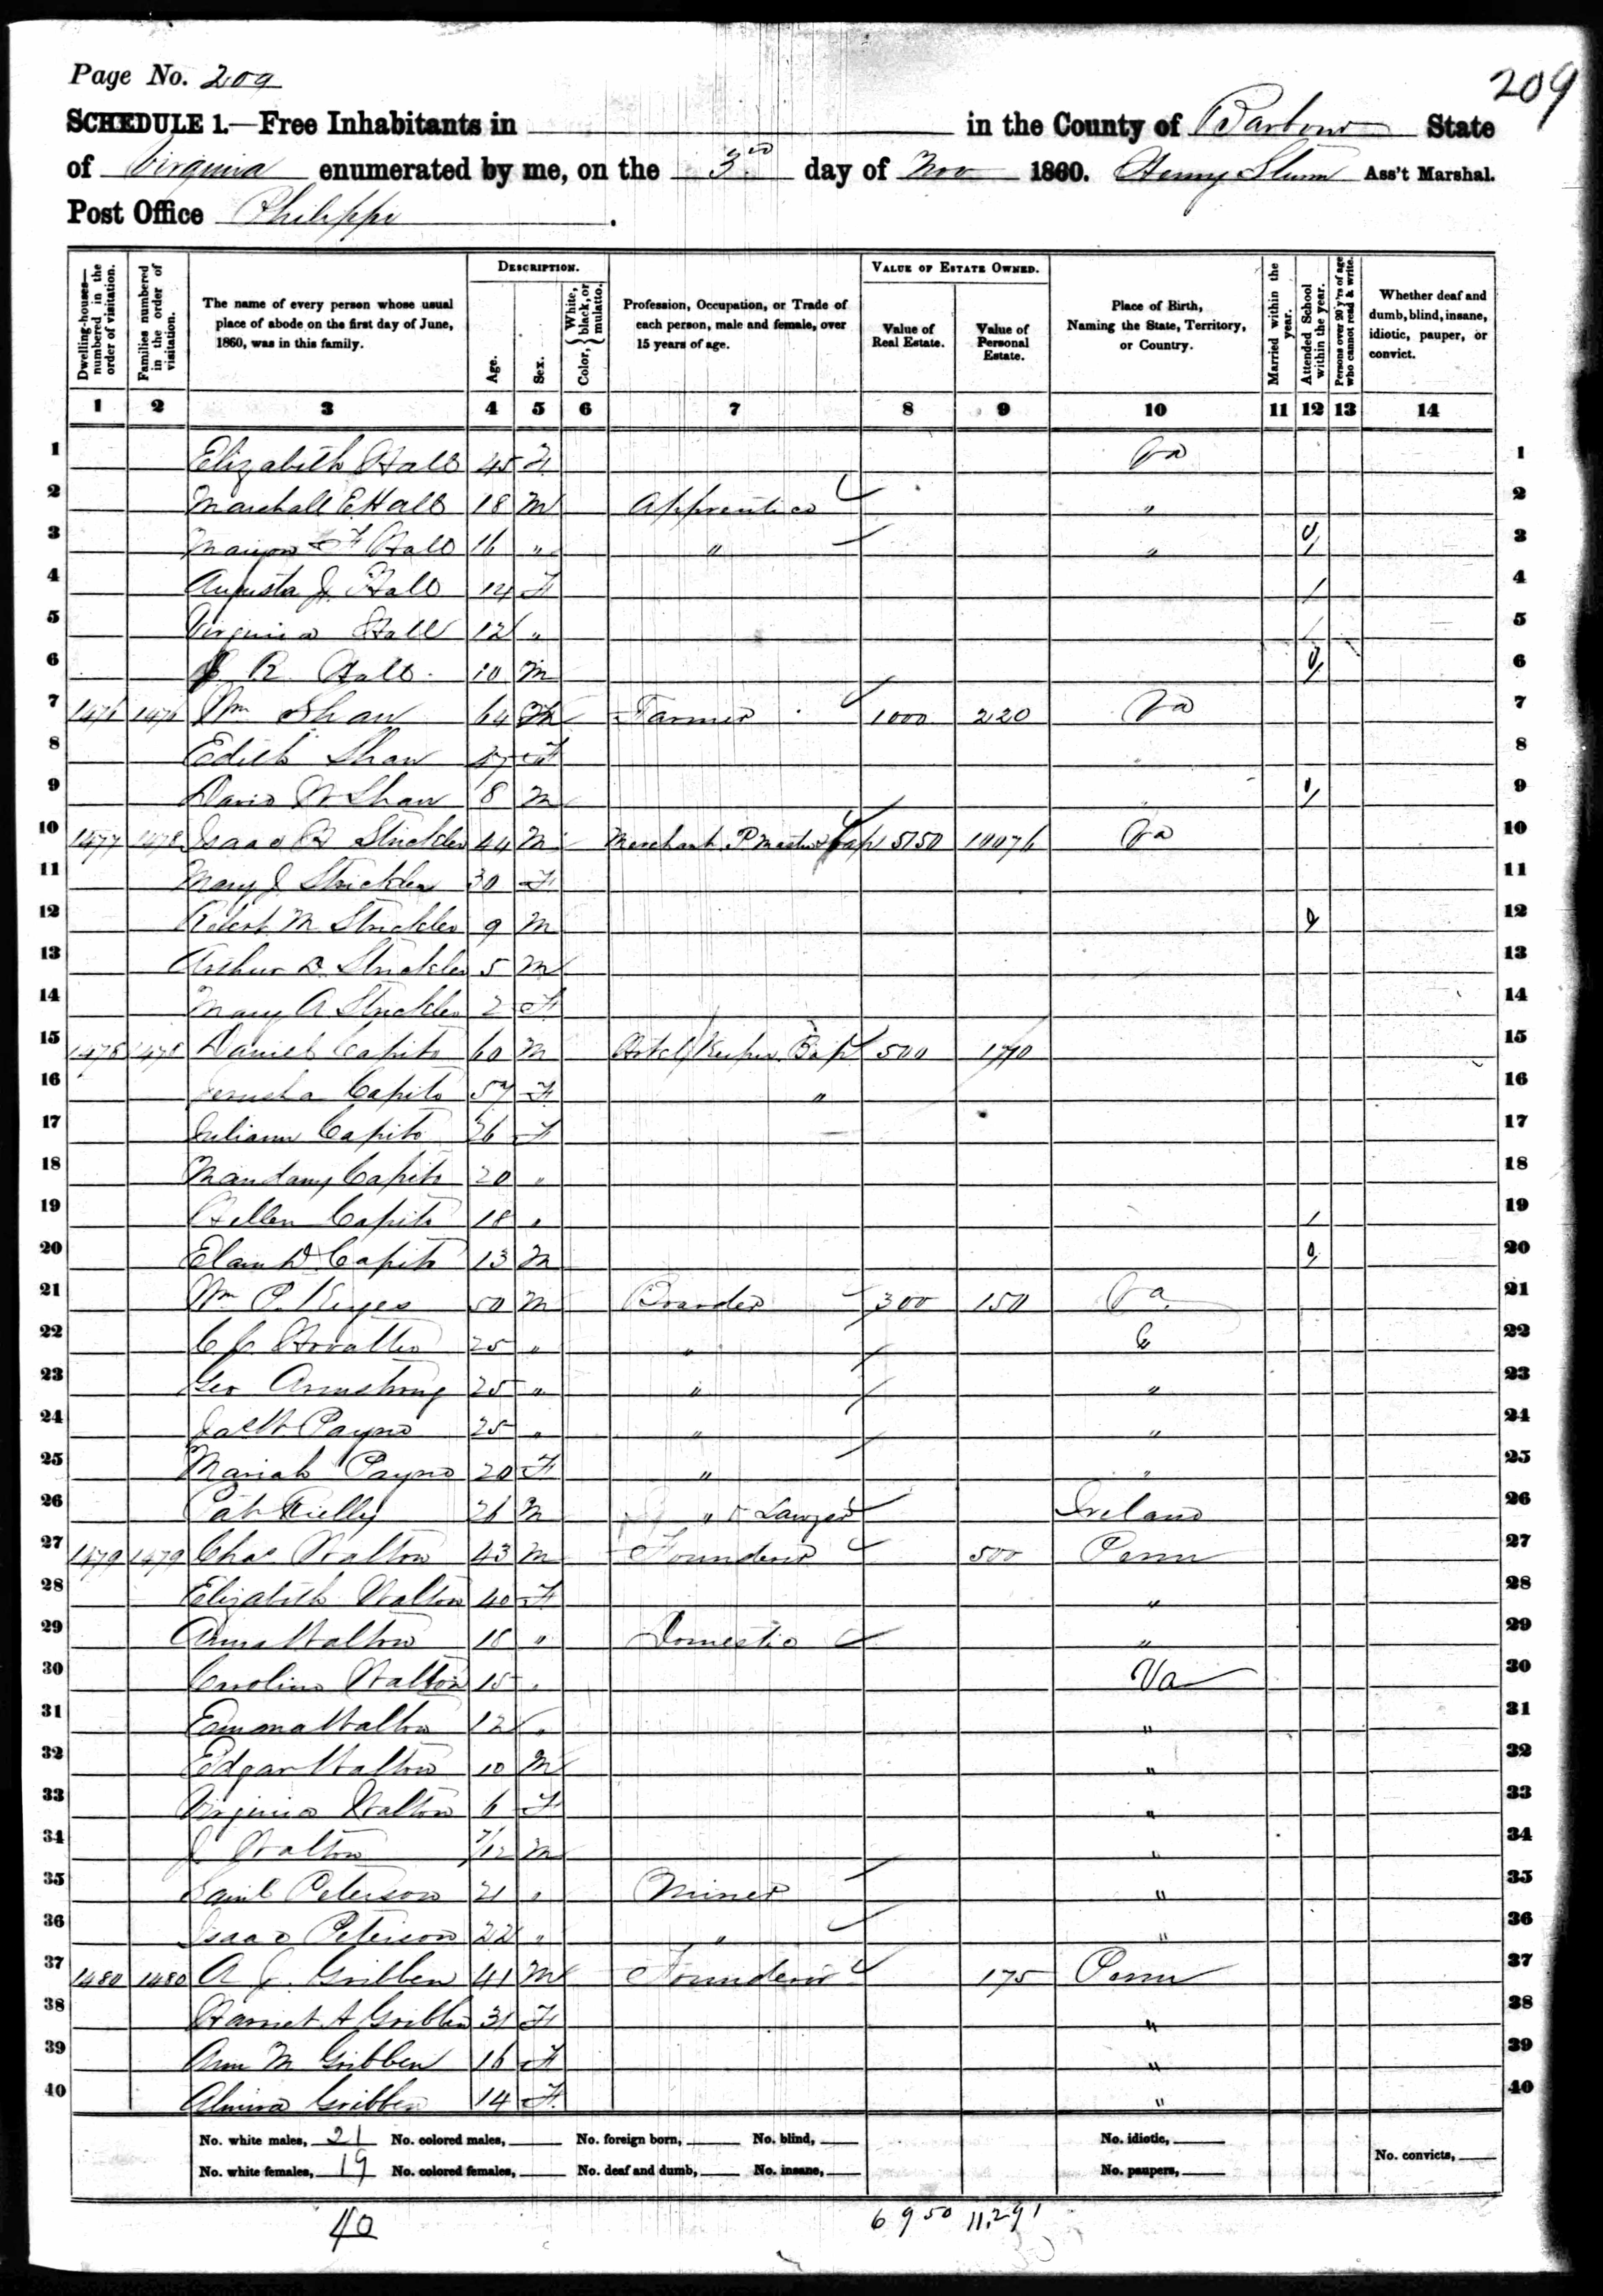 Page No. 209
209
SCHEDULE 1.—Free Inhabitants in in the County of Barbour State
of Virginia enumerated by me, on the 3rd day of Nov 1860. Henry Sturm Ass't Marshal.
Post Office Philippi.
DESCRIPTION. VALUE OF ESTATE OWNED.
Dwelling-houses—numbered in the order of visitation.
Families numbered in the order of visitation.
The name of every person whose usual place of abode on the first day of June, 1860, was in this family.
Age.
Sex.
Color, White, black, or mulatto.
Profession, Occupation, or Trade of each person, male and female, over 15 years of age.
Value of Real Estate.
Value of Personal Estate.
Place of Birth, Naming the State, Territory, or Country.
Married within the year.
Attended School within the year.
Persons over 20 y'rs of age who cannot read & write.
Whether deaf and dumb, blind, insane, idiotic, pauper, or convict.
1 2 3 4 5 6 7 8 9 10 11 12 13 14
1 Elizabeth Hall 45 F Va 1
2 Marshall E Hall 18 M Apprentice " 2
3 Marion F Hall 16 " " " / 3
4 Augusta J. Hall 14 F / 4
5 Virginia Hall 12 " / 5
6 R. Hall 10 M / 6
7 1476 1476 Wm Shaw 64 M Farmer 1000 220 Va 7
8 Edith Shaw 57 F 8
9 David W Shaw 8 M / 9
10 1477 1478 Isaac H Strickler 44 M Merchant P Master 5150 Va 10
11 Mary J Strickler 30 F 11
12 Robert M Strickler 9 M / 12
13 Arthur D. Strickler 5 M 13
14 Mary A Strickler 2 F 14
15 1478 1478 Daniel Capito 60 M Hotel Keeper Bap 500 15
16 Jerusha Capito 57 F " 16
17 Juliann Capito 26 F 17
18 Mandany Capito 20 " 18
19 Hellen Capito 18 " / 19
20 Elam D Capito 13 M / 20
21 Wm P. Keyes 50 M Boarder 300 150 Va 21
22 25 " " " 22
23 Geo Armstrong 25 " " " 23
24 Payne 25 " " " 24
25 Mariah Payne 20 F " " 25
26 Pat Rielly 26 M " Lawyer Ireland 26
27 1479 1479 Chas Walton 43 M Founderer 500 Penn 27
28 Elizabeth Walton 40 F " 28
29 Anna Walton 18 " Domestic " 29
30 Caroline Walton 15 " Va 30
31 Emma Walton 12 " " 31
32 Edgar Walton 10 M " 32
33 Virginia Walton 6 F " 33
34 J Walton 7/12 M " 34
35 Saml Peterson 21 " Miner " 35
36 Isaac Peterson 22 " " " 36
37 1480 1480 A J. Gribben 41 M Founderer 175 Penn 37
38 Harriet A Gribben 31 F " 38
39 Ann M Gribben 16 F " 39
40 Almira Gribben 14 F " 40
No. white males, 21 No. colored males, No. foreign born, No. blind, No. idiotic,
No. white females, 19 No. colored females, No. deaf and dumb, No. insane, No. paupers, No. convicts,
40 6950 11,291